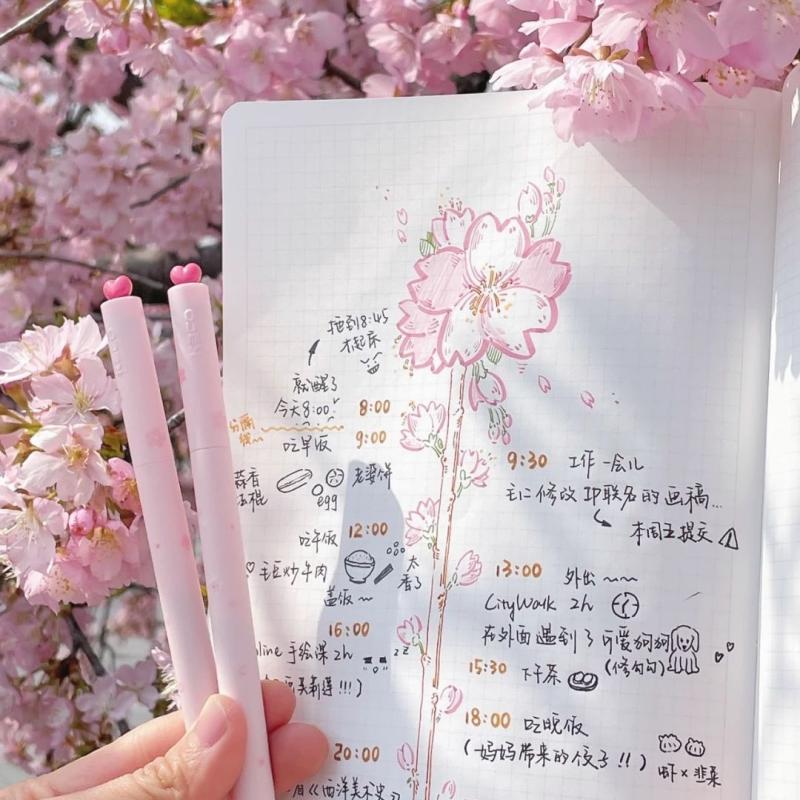 拖到8:45
才起床
就醒了
今天8:00
8:00
分隔
线~
9:00
吃早饭
蒜香
法棍
egg
老婆饼
12:00
吃午饭
毛豆炒牛肉
盖饭~
太
香了
16:00
line 手绘课 2h
z z
!!!)
20:00
看《西洋美术史》
9:30 工作一会儿
主仁修改IP联名的画稿...
本周五提交
13:00 外出~~
CityWalk 2h
在外面遇到了可爱狗狗
(修勾勾)
15:30 下午茶
18:00 吃晚饭
(妈妈带来的饺子!!)
虾×韭菜